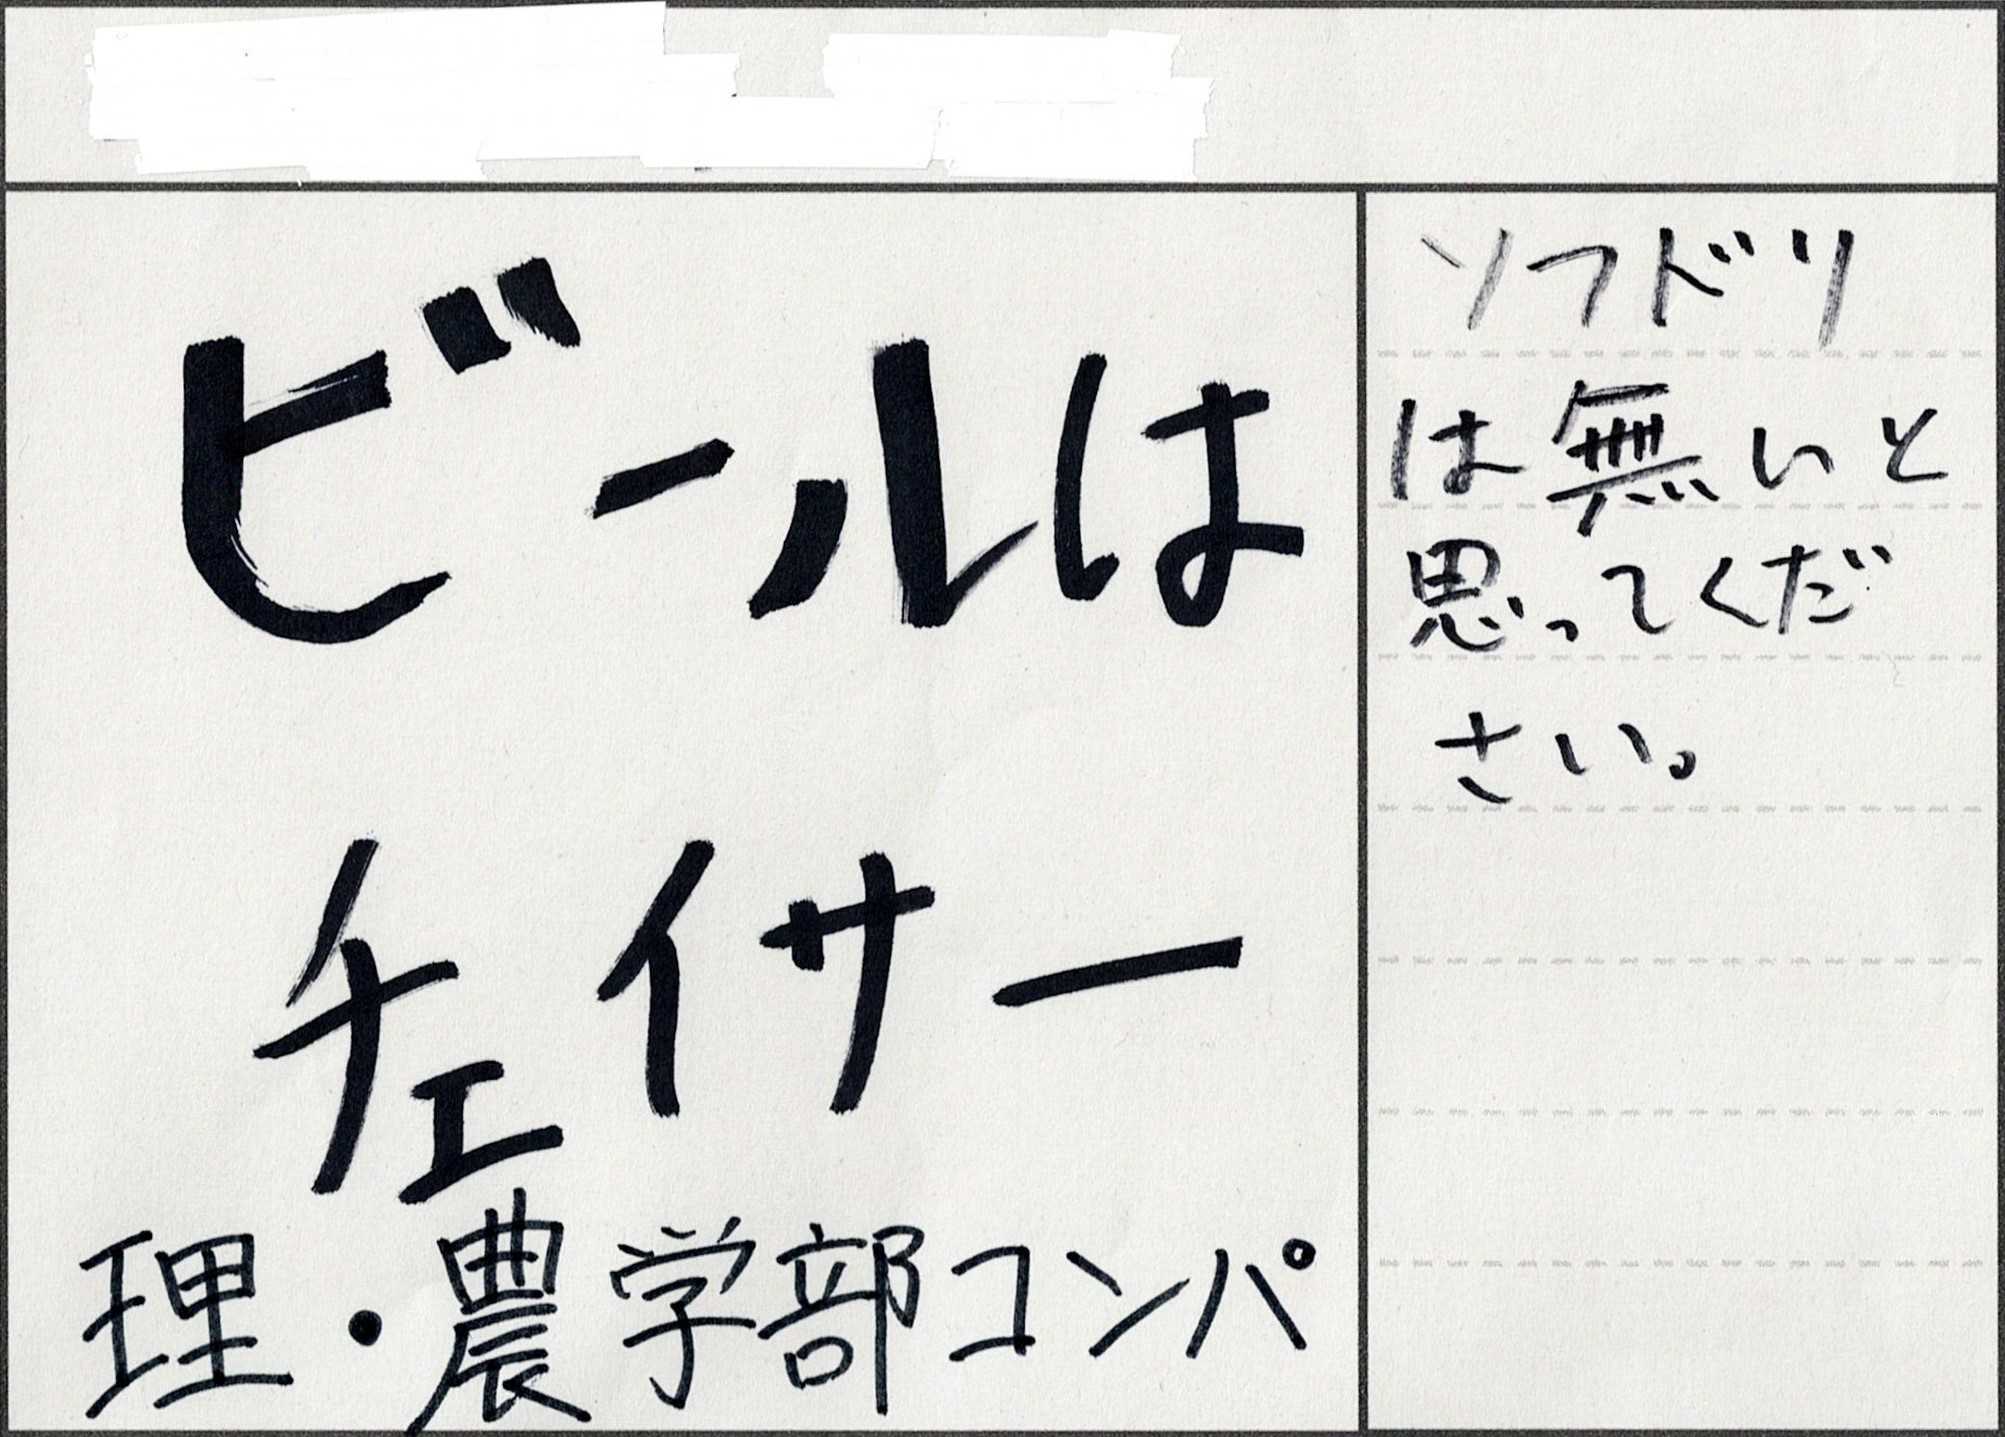 ビールは
チェイサー
理・農学部コンパ
ソフドリ
は無いと
思ってくだ
さい。